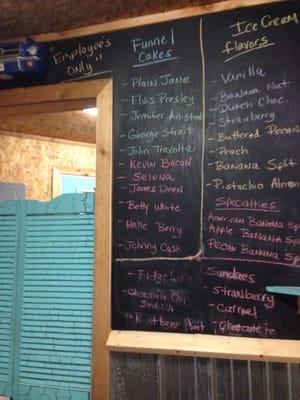 "Employee's
Only"
Funnel
Cakes
- Plain Jane
- Elvis Presley
- Jenifer Aniston
- George Strait
- John Travolta
- Kevin Bacon
- Selena
- James Dean
- Betty White
- Halle Berry
- Johnny Cash
- Fudge
- Chocolate Chip
Sandwich
- Root beer float
Ice Cream
flavors
- Vanilla
- Banana Nut
- Dutch Choc.
- Strawberry
- Buttered Pecan
- Peach
- Banana Split
- Pistachio Almond
Specialties
American Banana Sp
Apple Banana Sp
Pecan Banana Sp
Sundaes
- Strawberry
- Carmel
- Chocolate